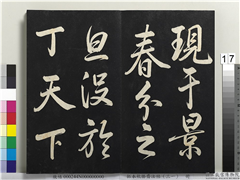 現于景
春分之
旦没於
丁天下
17